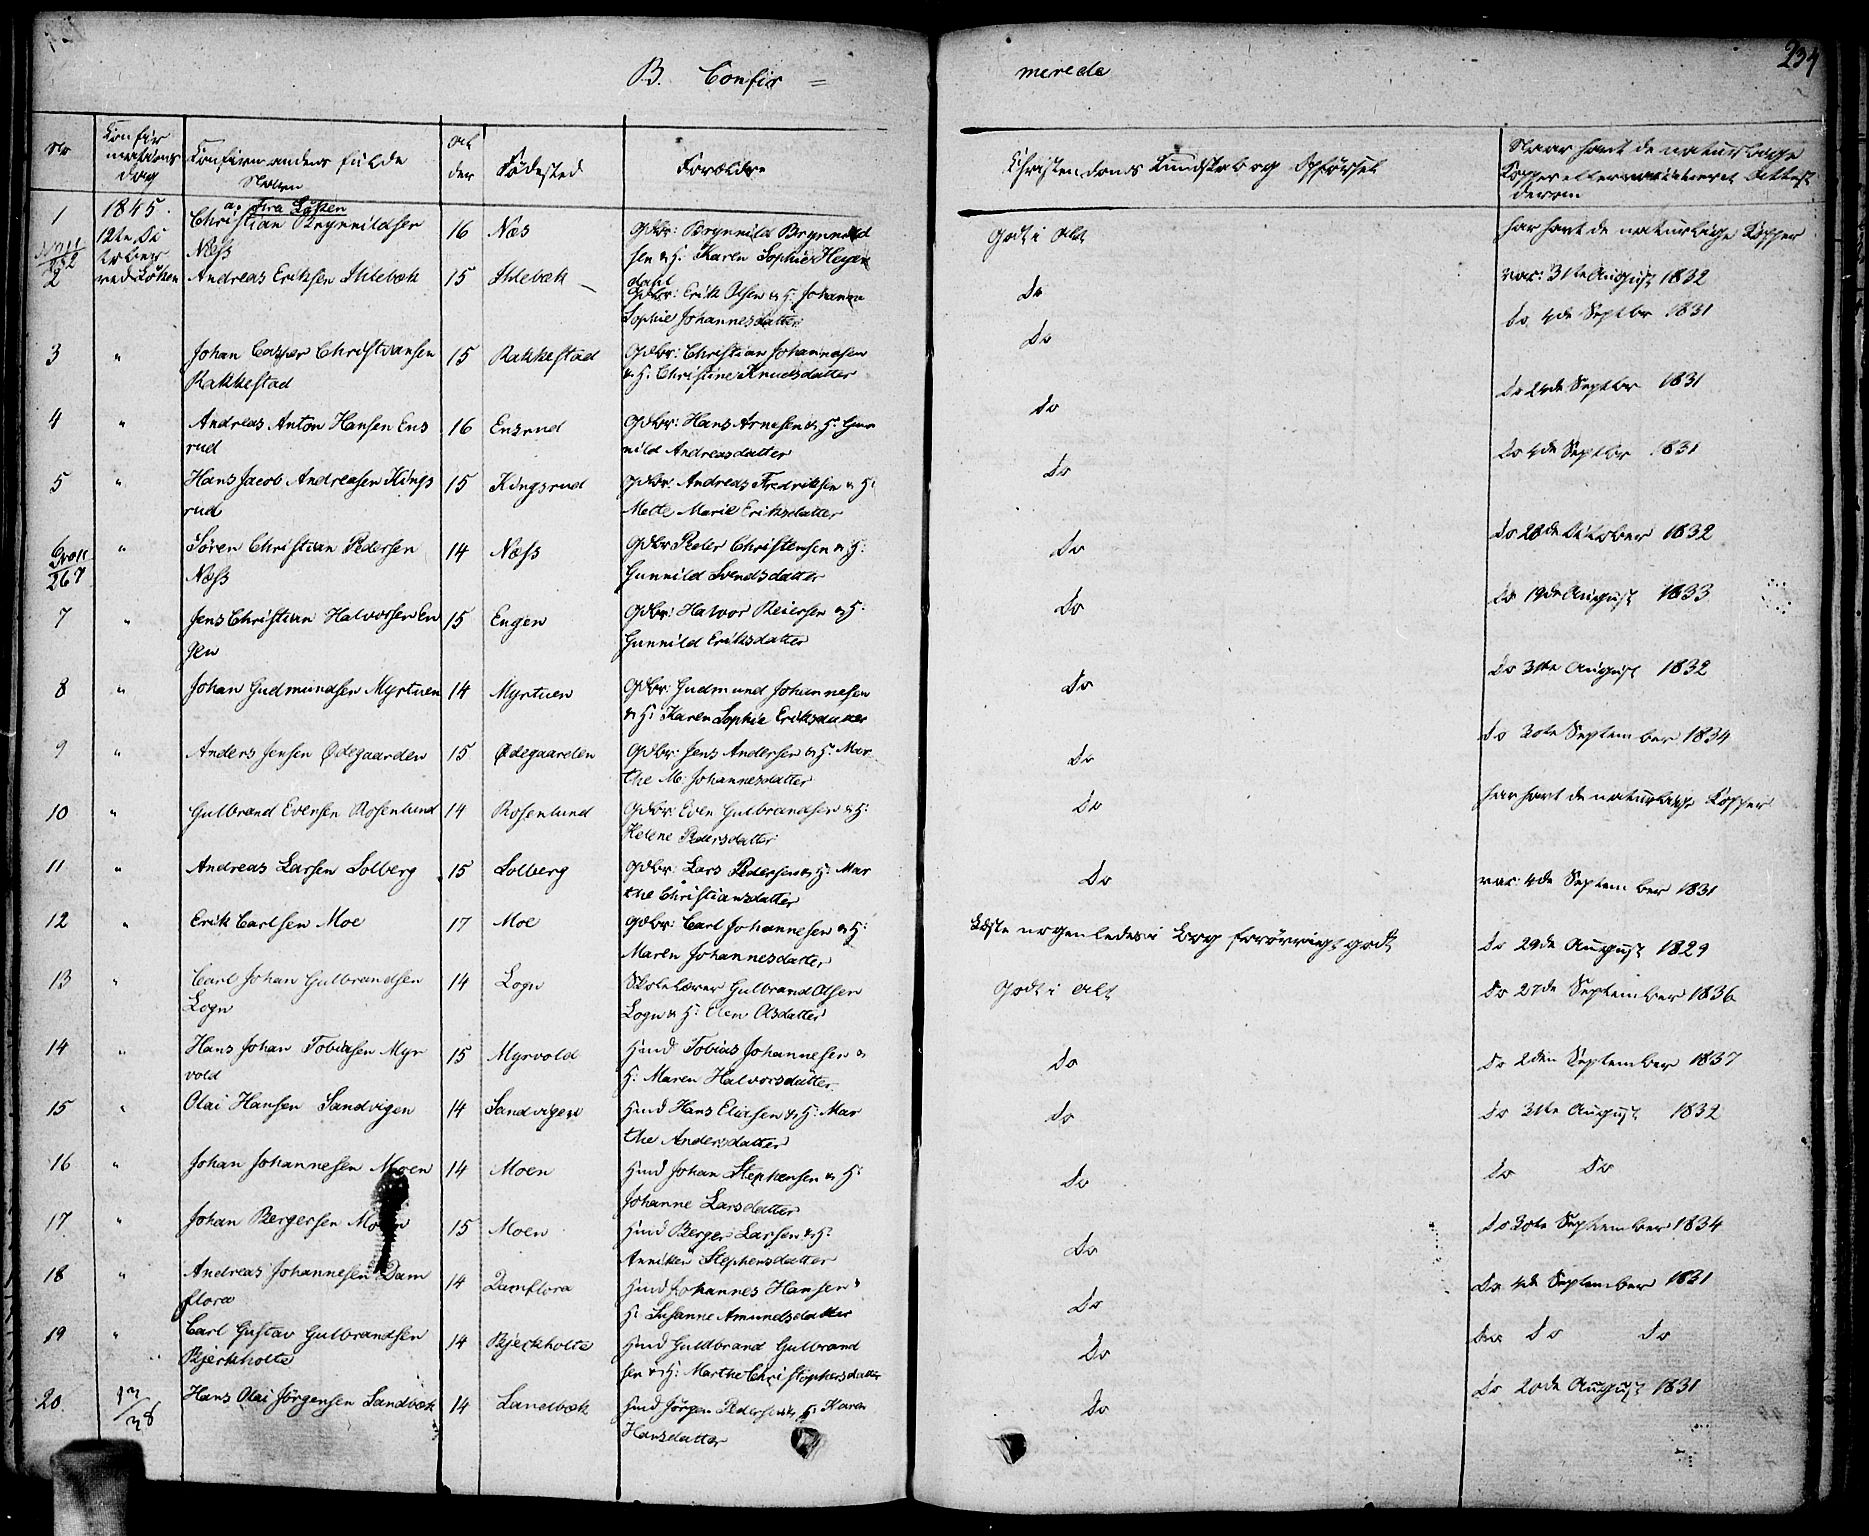 234
B. Confir =
merede
No
Confir
mations
dag
Confirmandens fulde
Navn
Al
der
Fødested
Forældre
Christendoms Kundskab og Opførsel
Naar havt de naturlige
Kopper eller vaccineret Attest
derom
1
1845.
12te Oc
tober
ved Løken
a. fra Løken
Christian Brynnildsen
Næss
16
Næs
Gdbr: Brynnild Brynnild
sen & H: Karen Sophie Heyer
dahl
Godt i Alt
har havt de naturlige Kopper
2
Andreas Eriksen Ihlebæk
15
Ihlebæk
Gdbr: Erik Olsen & H: Johanne
Sophie Johannesdatter
Do
vac: 31te August 1832
3
"
Johan Casper Christiansen
Rakkestad
15
Rakkestad
Gdbr: Christian Johannesen
& H: Christine Knudsdatter
Do
Do 4de Septbr 1831
4
"
Andreas Anton Hansen Ens
rud
16
Ensrud
Gdbr: Hans Arnesen & H: Gun
nild Andreasdatter
Do
Do 4de Septbr 1831
5
"
Hans Jacob Andreasen Kings
rud
15
Kingsrud
Gdbr: Andreas Fredriksen & H:
Mette Marie Eriksdatter
Do
Do 4de Septbr 1831
6
267
"
Søren Christian Pedersen
Næss
14
Næss
Gdbr Peder Christensen & H:
Gunnild Svendsdatter
Do
Do 28de October 1832
7
"
Jens Christian Halvorsen En
gen
15
Engen
Gdbr: Halvor Reiersen & H:
Gunnild Eriksdatter
Do
Do 19de August 1833
8
"
Johan Gudmundsen Myrtuen
14
Myrtuen
Gdbr: Gudmund Johannesen
& H: Karen Sophie Eriksdatter
Do
Do 31te August 1832
9
"
Anders Jensen Ødegaarden
15
Ødegaarden
Gdbr: Jens Andersen & H: Mar
the M: Johannesdatter
Do
Do 30te September 1834
10
"
Gulbrand Evensen Rosenlund
14
Rosenlund
Gdbr: Even Gulbrandsen & H:
Helene Pedersdatter
Do
har havt de naturlige Kopper
11
"
Andreas Larsen Solberg
15
Solberg
Gdbr: Lars Pedersen & H: Mar
the Christiansdatter
Do
vac: 4de September 1831
12
"
Erik Carlsen Moe
17
Moe
Gdbr: Carl Johannesen & H:
Maren Johannesdatter
Læste nogenledes i Bog forøvrigt godt
Do 29de August 1829
13
"
Carl Johan Gulbrandsen
Logn
14
Logn
Skolelærer Gulbrand Olsen
Logn & H: Elen Olsdatter
Godt i Alt
Do 27de September 1836
14
"
Hans Johan Tobiasen Myr
vold
15
Myrvold
Hmd Tobias Johannesen &
H: Maren Halvorsdatter
Do
Do 2den September 1837
15
"
Olai Hansen Sandvigen
14
Sandvigen
Hmd Hans Eliasen & H: Mar
the Andersdatter
Do
Do 31te August 1832
16
"
Johan Johannesen Moen
14
Moen
Hmd Johan Stephensen & H:
Johanne Larsdatter
Do
Do Do
17
"
Johan Bergersen Moen
15
Moen
Hmd Berger Larsen & H:
Anniken Stephensdatter
Do
Do 30te September 1834
18
"
Andreas Johannesen Dam
flora
14
Damflora
Hmd Johannes Hansen &
H: Susanne Amundsdatter
Do
Do 4de September 1831
19
"
Carl Gustav Gulbrandsen
Bjerkholte
14
Bjerkholte
Hmd Guldbrand Gulbrand
sen & H: Marthe Christophersdatter
Do
Do Do
20.
Hans Olai Jørgensen Sandbæk
14
Sandbæk
Hmd Jørgen Pedersen & H: Karen
Hansdatter
Do
Do 20de August 1831